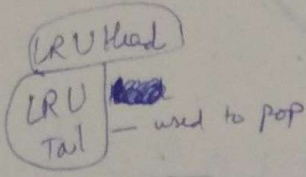 LRU Head
LRU
Tail — used to pop